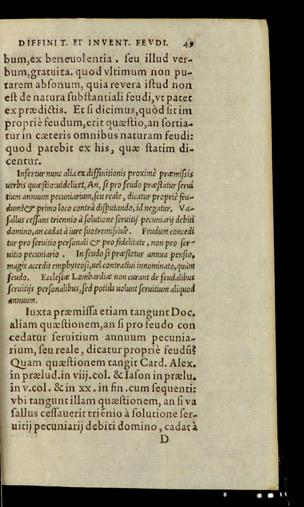 DIFFINIT. ET INVENT. FEVDI. 49
bum, ex beneuolentia. seu illud ver-
bum, gratuita. quod vltimum non pu-
tarem absonum, quia reuera istud non
est de natura substantiali feudi, vt patet
ex prædictis. Et si dicimus, quòd sit im
propriè feudum, erit quæstio, an sortia-
tur in cæteris omnibus naturam feudi:
quod patebit ex his, quæ statim di-
centur.
Infertur nunc alia ex diffinitionis proximè præmissis
verbis quæstio: uidelicet, An, si pro feudo præstatur serui
tium annuum pecuniarium, seu reale, dicatur propriè feu-
dum? & primo loco contrà disputando, id negatur. Va-
sallus cessans triennio à solutione seruitij pecuniarij debiti
domino, an cadat à iure suo tremißiue. Feudum concedi
tur pro seruitio personali & pro fidelitate, non pro ser-
uitio pecuniario. In feudo si præstetur annua pensio,
magis accedit emphyteosi, uel contractui innominato, quàm
feudo. Ecclesiæ Lombardiæ non curant de feudalibus
seruitijs personalibus, sed potiùs uolunt seruitium aliquod
annuum.
Iuxta præmissa etiam tangunt Doc.
aliam quæstionem, an si pro feudo con
cedatur seruitium annuum pecunia-
rium, seu reale, dicatur propriè feudũ?
Quam quæstionem tangit Card. Alex.
in prælud. in viij. col. & Iason in prælu.
in v. col. & in xx. in fin. cum sequenti:
vbi tangunt illam quæstionem, an si va
sallus cessauerit triẽnio à solutione ser-
uitij pecuniarij debiti domino, cadat à
D